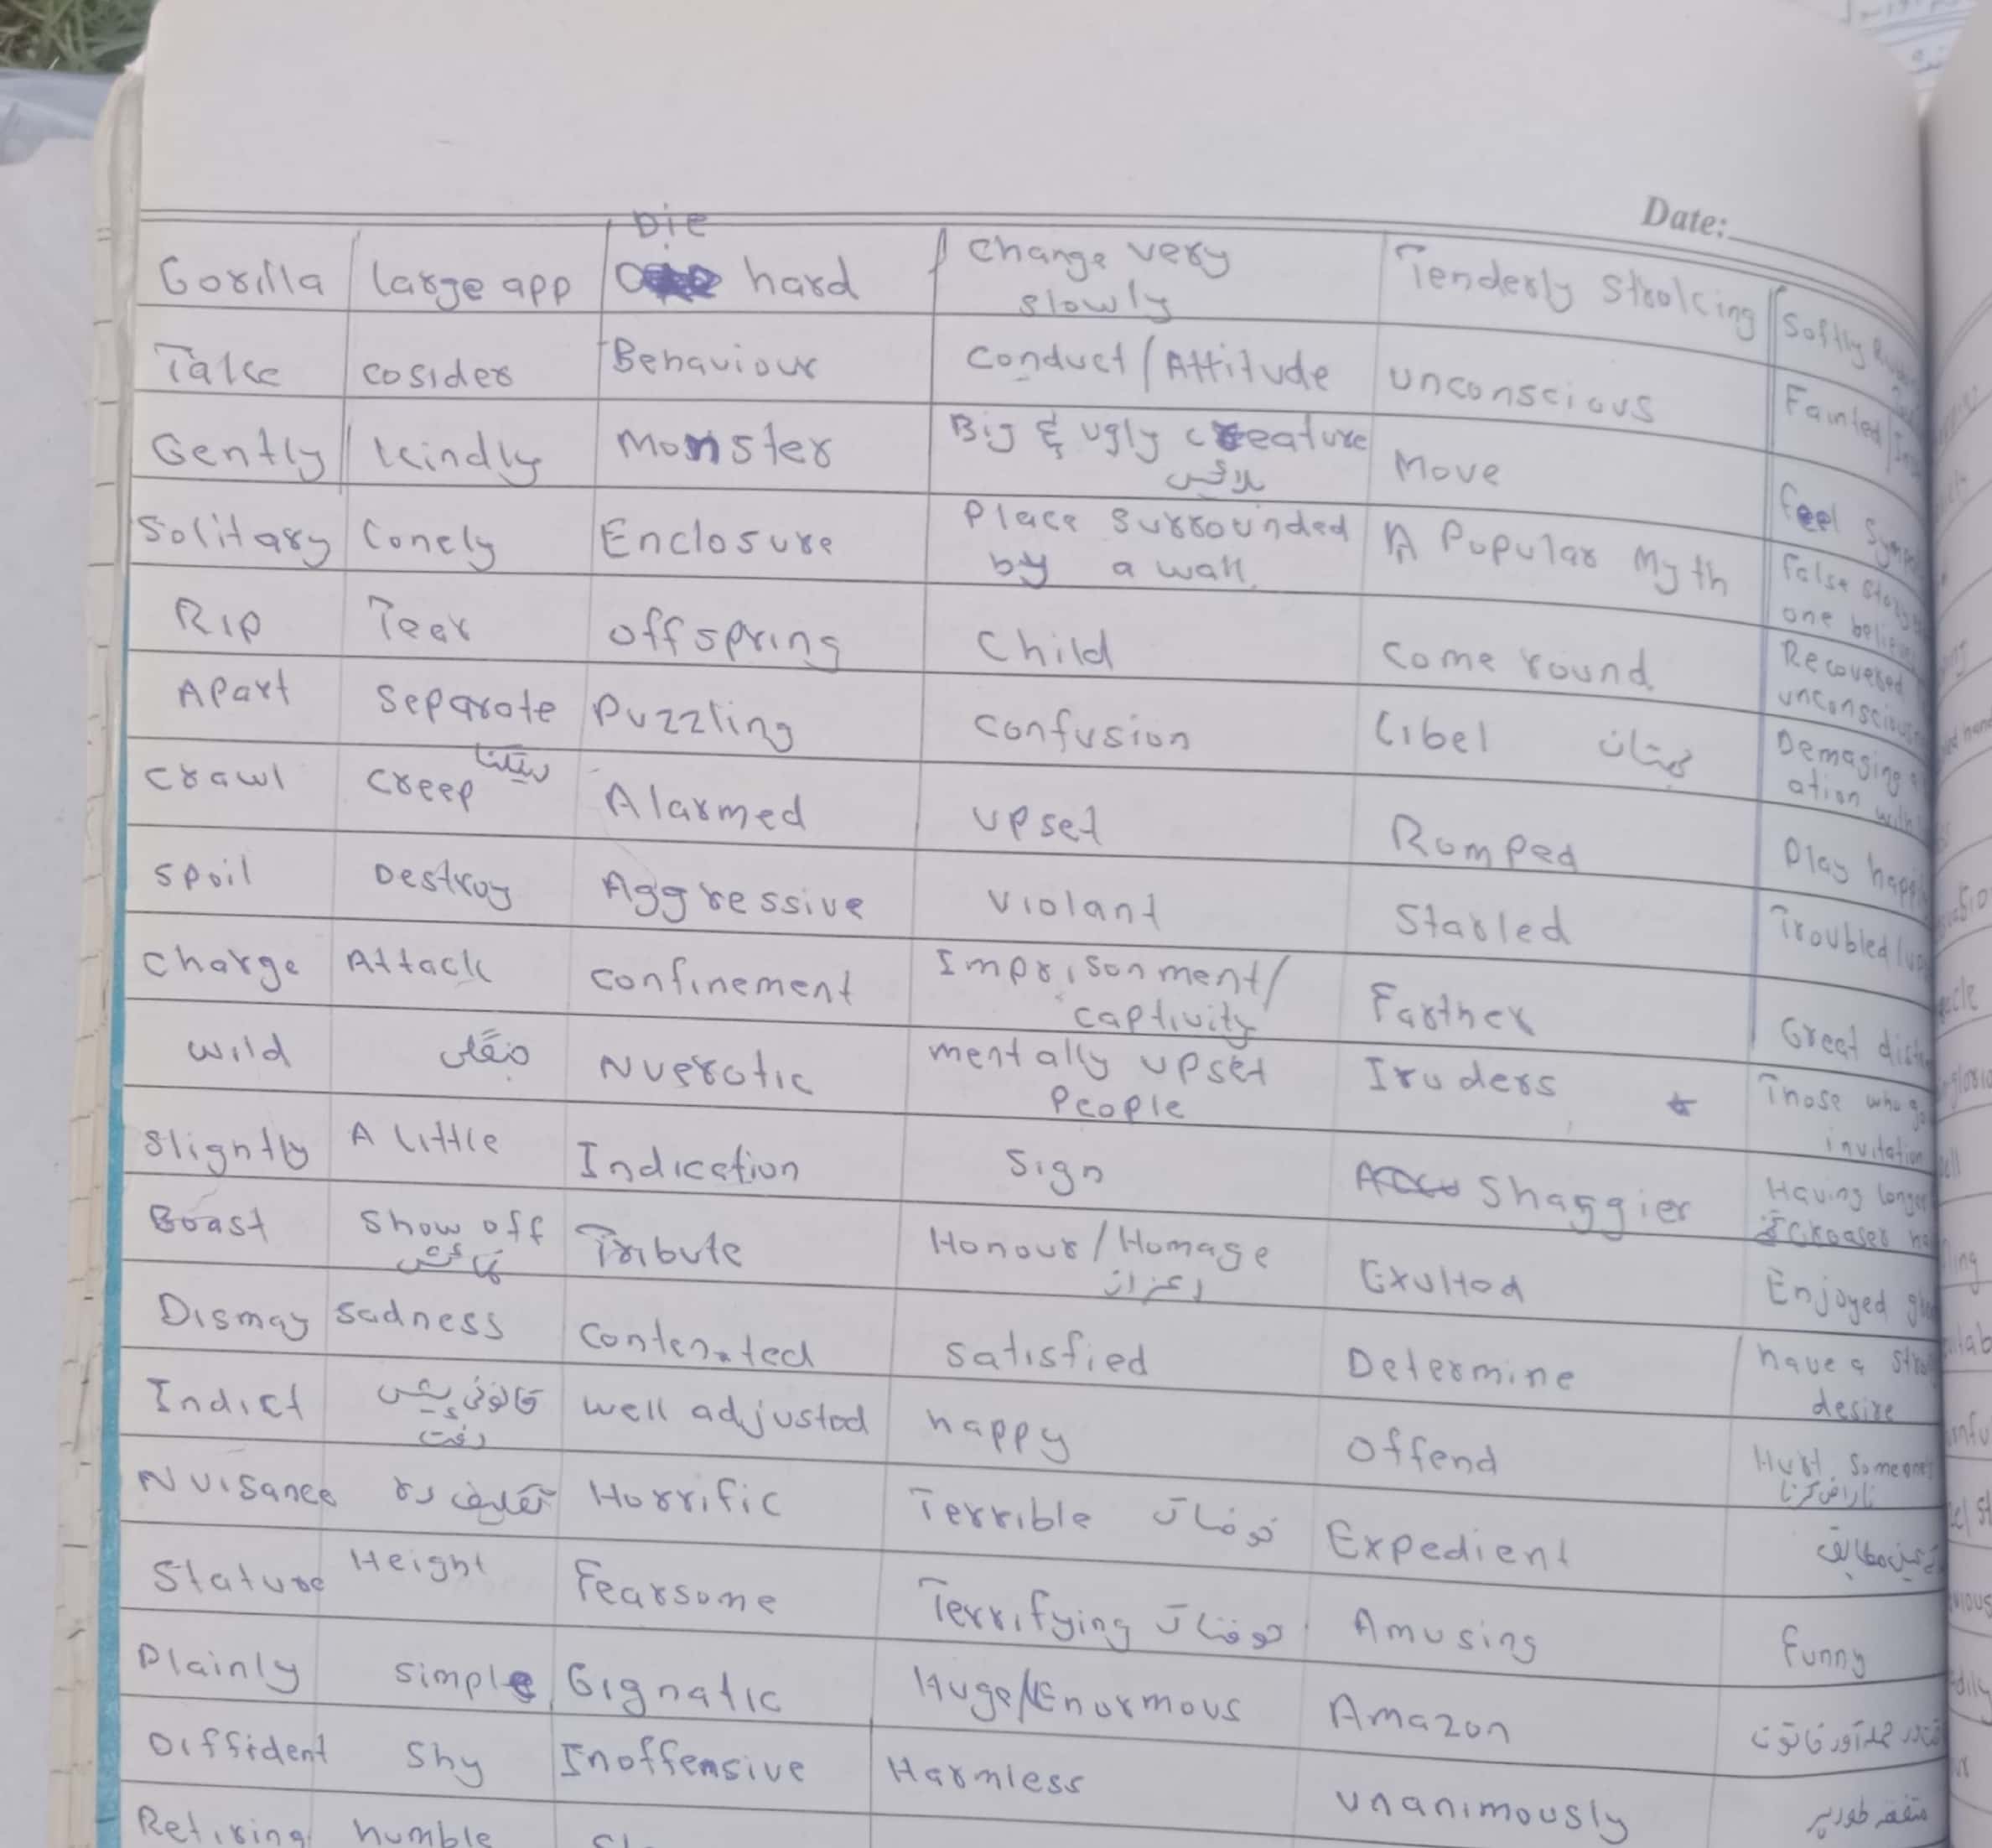 Date:
Gorilla large app Die hard Change very slowly Tenderly Stroking Softly
Take cosider Behaviour Conduct / Attitude unconscious Fainted
Gently kindly Monster Big & ugly creature Move feel
Solitary Lonely Enclosure Place surrounded by a wall. A Popular Myth false story one
Rip Tear offspring Child come round. Recovered unconscious
Apart Separate Puzzling confusion Libel بہتان Demaging ation with
crawl creep رینگنا Alarmed upset Romped Play
spoil Destroy Aggressive violant Starled Troubled
charge Attack confinement Imprisonment/ captivity Farther Great
wild جنگلی Nuerotic mentally upset People Iruders Those who invitation
Slightly A little Indication Sign Shaggier Having longer
Boast Show off Tribute Honour / Homage اعزاز Exulted Enjoyed
Dismay sadness Contented satisfied Determine have a desire
Indict well adjusted happy offend Hurt Someone ناراض کرنا
Nuisance تکلیف دہ Horrific Terrible خوفناک Expedient
Stature Height Fearsome Terrifying خوفناک Amusing funny
Plainly simple Gignatic Huge/Enormous Amazon
Diffident Shy Inoffensive Harmless unanimously متفقہ طور پر
Retiring humble